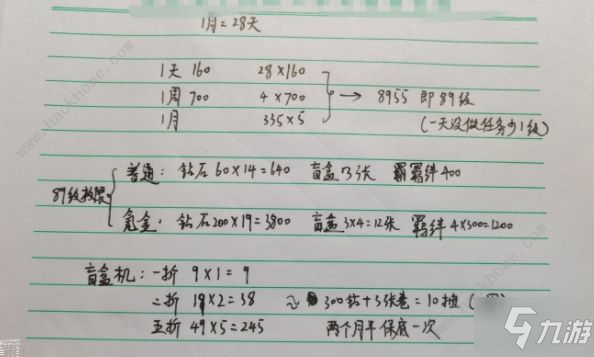 1月=28天
1天 160 28×160
1周 700 4×700 → 8955 即89级
1月 335×5 (一天没做任务少1级)
普通: 钻石60×14=640 盲盒13张 羁绊400
89级
氪金: 钻石200×19=3800 盲盒3×4=12张 羁绊4×300=1200
盲盒机: 一折 9×1=9
二折 19×2=38 ≈ 300钻+3张卷=10抽
五折 49×5=245 两个月半保底一次
九游